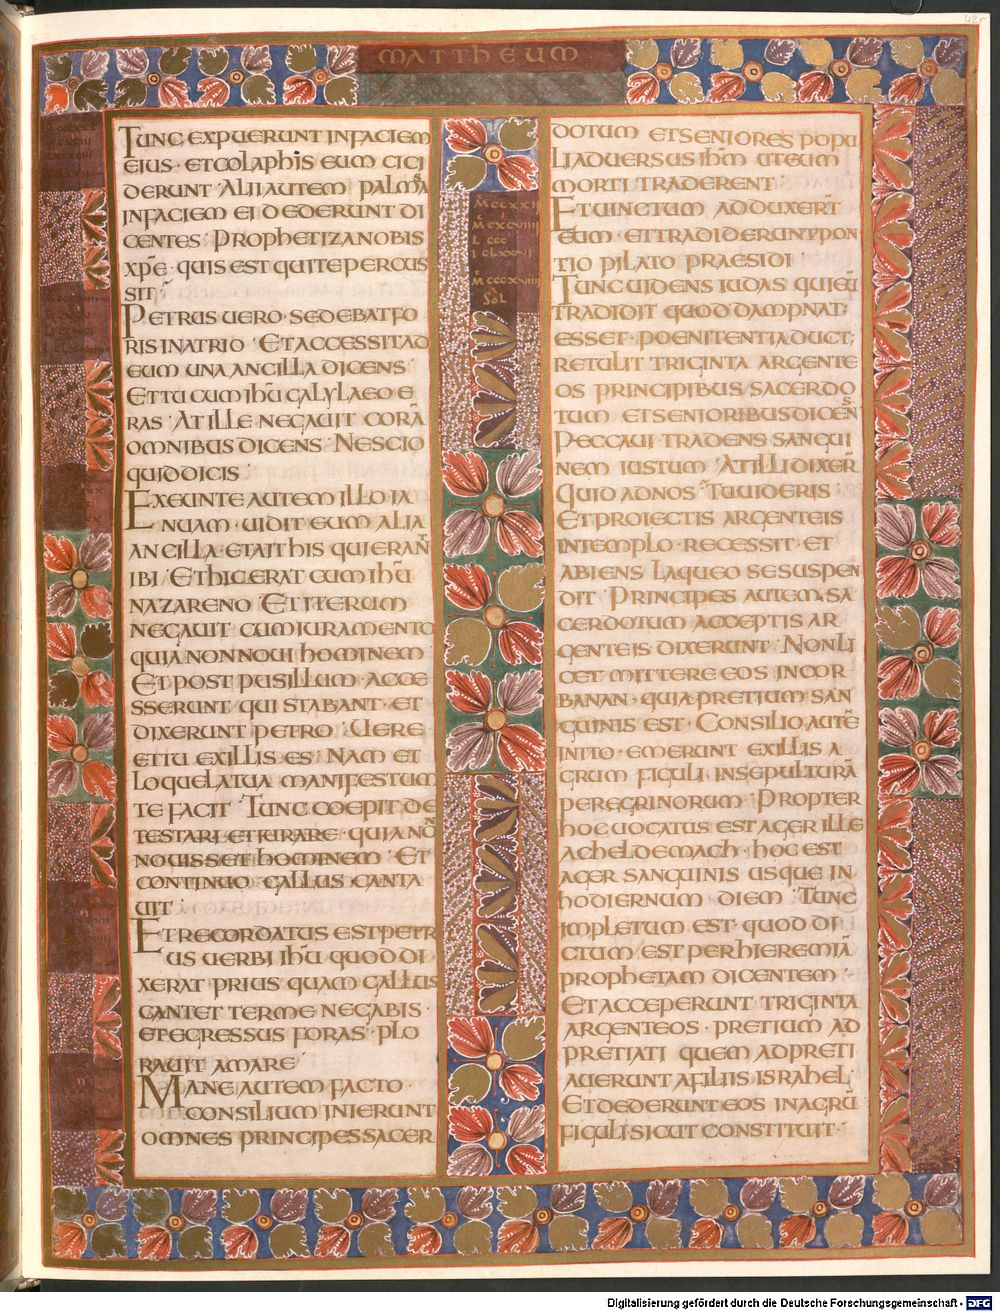 42r
MATTHEUM
TUNC EXPUERUNT IN FACIEM
EIUS · ET COLAPHIS EUM CICI
DERUNT · ALII AUTEM PALMAS
IN FACIEM EI DEDERUNT DI
CENTES · PROPHETIZA NOBIS
XPE̅ · QUIS EST QUI TE PERCUS
SIT ·
PETRUS UERO · SEDEBAT FO
RIS IN ATRIO · ET ACCESSIT AD
EUM UNA ANCILLA DICENS ·
ET TU CUM IHU̅ GALYLAEO E
RAS · AT ILLE NEGAUIT CORA̅
OMNIBUS DICENS · NESCIO
QUID DICIS ·
EXEUNTE AUTEM ILLO IA
NUAM · UIDIT EUM ALIA
ANCILLA · ET AIT HIS QUI ERANT
IBI · ET HIC ERAT CUM IHU̅
NAZARENO · ET ITERUM
NEGAUIT CUM IURAMENTO
QUIA NON NOUI HOMINEM
ET POST PUSILLUM · ACCE
SSERUNT QUI STABANT · ET
DIXERUNT PETRO · UERE
ET TU EX ILLIS ES · NAM ET
LOQUELA TUA MANIFESTUM
TE FACIT · TUNC COEPIT DE
TESTARI ET IURARE · QUIA NO̅
NOUISSET HOMINEM · ET
CONTINUO · GALLUS CANTA
UIT ·
ET RECORDATUS EST PETR
US UERBI IHU̅ QUOD DI
XERAT · PRIUS QUAM GALLUS
CANTET TER ME NEGABIS ·
ET EGRESSUS FORAS · PLO
RAUIT AMARE ·
MANE AUTEM FACTO ·
CONSILIUM INIERUNT
OMNES PRINCIPES SACER
DOTUM ET SENIORES POPU
LI ADUERSUS IHM̅ UT EUM
MORTI TRADERENT ·
ET UINCTUM ADDUXER̅T
EUM · ET TRADIDERUNT PON
TIO PILATO PRAESIDI
TUNC UIDENS IUDAS QUI EU̅
TRADIDIT QUOD DAMPNAT;
ESSET · POENITENTIA DUCT;
RETULIT TRIGINTA ARGENTE
OS PRINCIPIBUS SACERDO
TUM ET SENIORIBUS DICENS
PECCAUI · TRADENS SANGUI
NEM IUSTUM · AT ILLI DIXER̅
QUID AD NOS · TU UIDERIS ·
ET PROIECTIS ARGENTEIS
IN TEMPLO · RECESSIT · ET
ABIENS LAQUEO SE SUSPEN
DIT · PRINCIPES AUTEM · SA
CERDOTUM ACCEPTIS AR
GENTEIS DIXERUNT · NON LI
CET MITTERE EOS IN COR
BANAN · QUIA PRETIUM SAN
GUINIS EST · CONSILIO AUTE̅
INITO · EMERUNT EX ILLIS A
GRUM FIGULI · IN SEPULTURA̅
PEREGRINORUM · PROPTER
HOC UOCATUS EST AGER ILLE
ACHELDEMACH · HOC EST
AGER SANGUINIS USQUE IN
HODIERNUM DIEM · TUNC
IMPLETUM EST · QUOD DI
CTUM EST PER HIEREMIA̅
PROPHETAM DICENTEM ·
ET ACCEPERUNT TRIGINTA
ARGENTEOS · PRETIUM AD
PRETIATI QUEM ADPRETI
AUERUNT A FILIIS ISRAHEL ·
ET DEDERUNT EOS IN AGRU̅
FIGULI SICUT CONSTITUIT ·
Digitalisierung gefördert durch die Deutsche Forschungsgemeinschaft - DFG